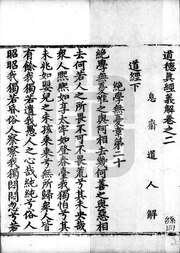 道德真經義解卷之二
息齋道人解
道經下
絕學無憂章第二十
絕學無憂唯之與阿相去幾何善之與惡相
去何若人之所畏不可不畏荒兮其未央哉
衆人熙熙如享太牢如登春臺我獨怕兮其
未兆如嬰兒之未孩乘乘兮若無所歸衆人皆
有餘我獨若遺我愚人之心也哉純純兮俗人
昭昭我獨若昏俗人察察我獨悶悶